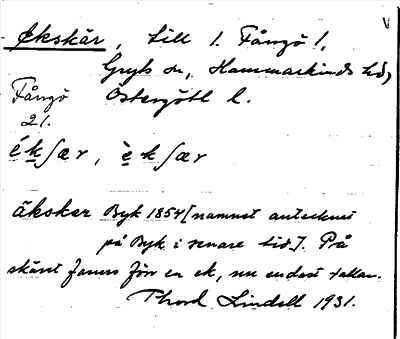 v
Ekskär, Lill 1. Fångö 1,
Gryts sn, Hammarkinds hd,
Fångö Östergötl l.
21.
é k ʃ æ r, è k ʃ æ r
äksker Byk 1854 [namnet antecknat
på Byk i senare tid]. På
skäret fanns förr en ek, nu endast tallar.
Thord Lindell 1931.